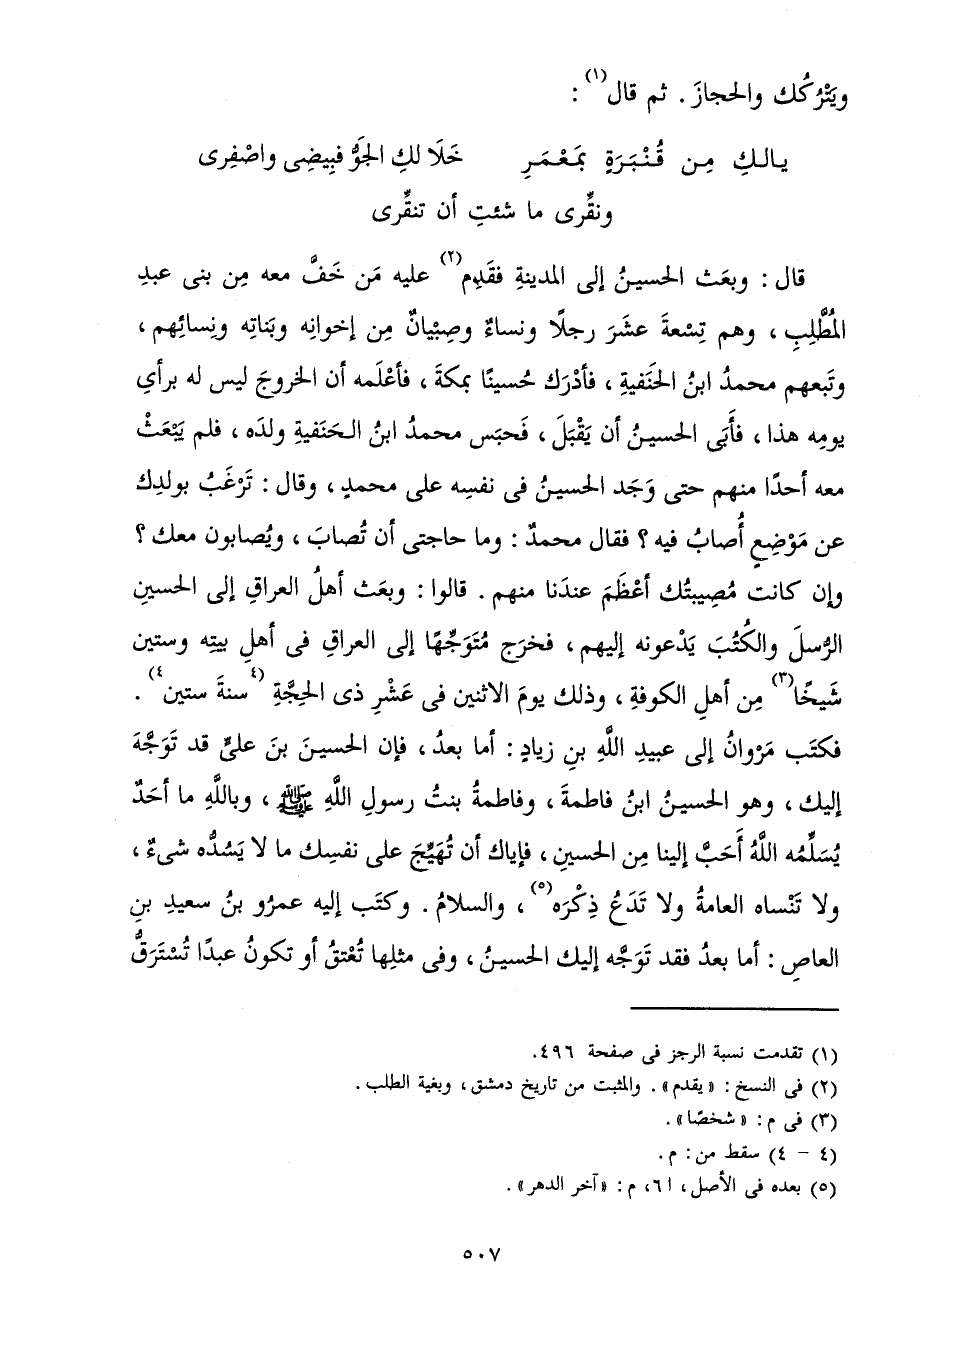 ويَتْرُكُك والحجازَ . ثم قال(١) :
يالكِ مِن قُنْبَرَةٍ بمَعْمَرِ خَلَا لكِ الجَوُّ فبِيضِى واصْفِرِى
ونقِّرِى ما شئتِ أن تنقِّرِى
قال : وبعَث الحسينُ إلى المدينةِ فقَدِم(٢) عليه مَن خَفَّ معه مِن بنى عبدِ
المُطَّلِبِ ، وهم تِسْعةَ عشَرَ رجلًا ونساءٌ وصِبْيانٌ مِن إخوانِه وبَناتِه ونِسائِهم ،
وتَبعهم محمدُ ابنُ الحَنَفيةِ ، فأدْرَك حُسينًا بمكةَ ، فأعْلَمه أن الخروجَ ليس له برأىِ
يومِه هذا ، فأَبَى الحسينُ أن يَقْبَلَ ، فَحبَس محمدُ ابنُ الحَنَفيةِ ولدَه ، فلم يَبْعَثْ
معه أحدًا منهم حتى وَجَد الحسينُ فى نفسِه على محمدٍ ، وقال : تَرْغَبُ بولدِك
عن مَوْضِعٍ أُصابُ فيه ؟ فقال محمدٌ : وما حاجتى أن تُصابَ ، ويُصابون معك ؟
وإن كانت مُصِيبتُك أعْظَمَ عندَنا منهم . قالوا : وبعَث أهلُ العراقِ إلى الحسينِ
الرُّسلَ والكُتُبَ يَدْعونه إليهم ، فخرَج مُتَوَجِّهًا إلى العراقِ فى أهلِ بيتِه وستين
شَيخًا(٣) مِن أهلِ الكوفةِ ، وذلك يومَ الاثنين فى عَشْرِ ذى الحِجَّةِ (٤سنةَ ستين٤) .
فكتَب مَرْوانُ إلى عبيدِ اللَّهِ بنِ زيادٍ : أما بعدُ ، فإن الحسينَ بنَ علىٍّ قد تَوَجَّهَ
إليك ، وهو الحسينُ ابنُ فاطمةَ ، وفاطمةُ بنتُ رسولِ اللَّهِ ﷺ ، وباللَّهِ ما أحَدٌ
يُسَلِّمُه اللَّهُ أَحَبَّ إلينا مِن الحسينِ ، فإياك أن تُهَيِّجَ على نفسِك ما لا يَسُدُّه شىءٌ ،
ولا تَنْساه العامةُ ولا تَدَعُ ذِكْرَه(٥) ، والسلامُ . وكتَب إليه عمرُو بنُ سعيدِ بنِ
العاصِ : أما بعدُ فقد تَوَجَّه إليك الحسينُ ، وفى مثلِها تُعْتقُ أو تكونُ عبدًا تُسْتَرَقُّ
(١) تقدمت نسبة الرجز فى صفحة ٤٩٦.
(٢) فى النسخ : «يقدم» . والمثبت من تاريخ دمشق ، وبغية الطلب .
(٣) فى م : «شخصًا» .
(٤ - ٤) سقط من : م.
(٥) بعده فى الأصل ، ٦١، م : «آخر الدهر» .
٥٠٧